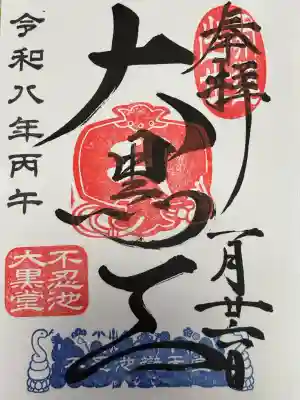 奉拝
大黒天
一月廿六日
令和八年丙午
不忍池
大黒堂